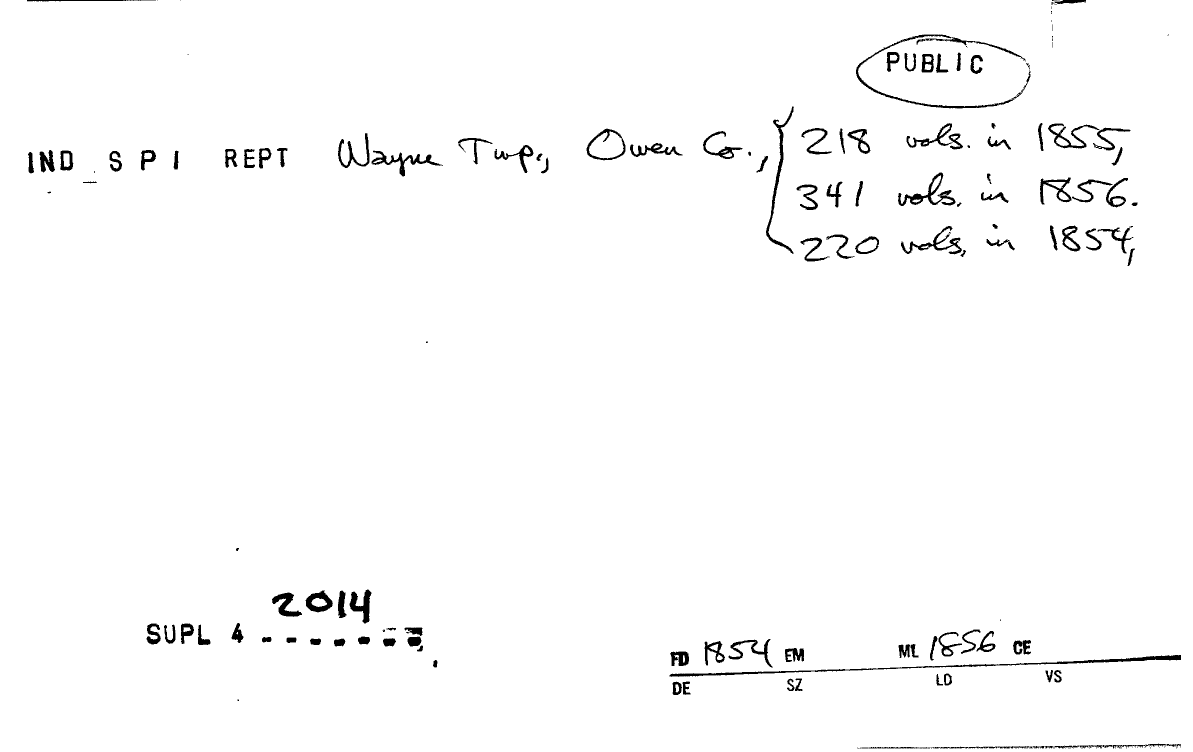 PUBLIC
IND S P I REPT Wayne Twp., Owen Co., 218 vols. in 1855,
341 vols. in 1856.
220 vols. in 1854,
2014
SUPL 4
FD 1854 EM ML 1856 CE
DE SZ LD VS